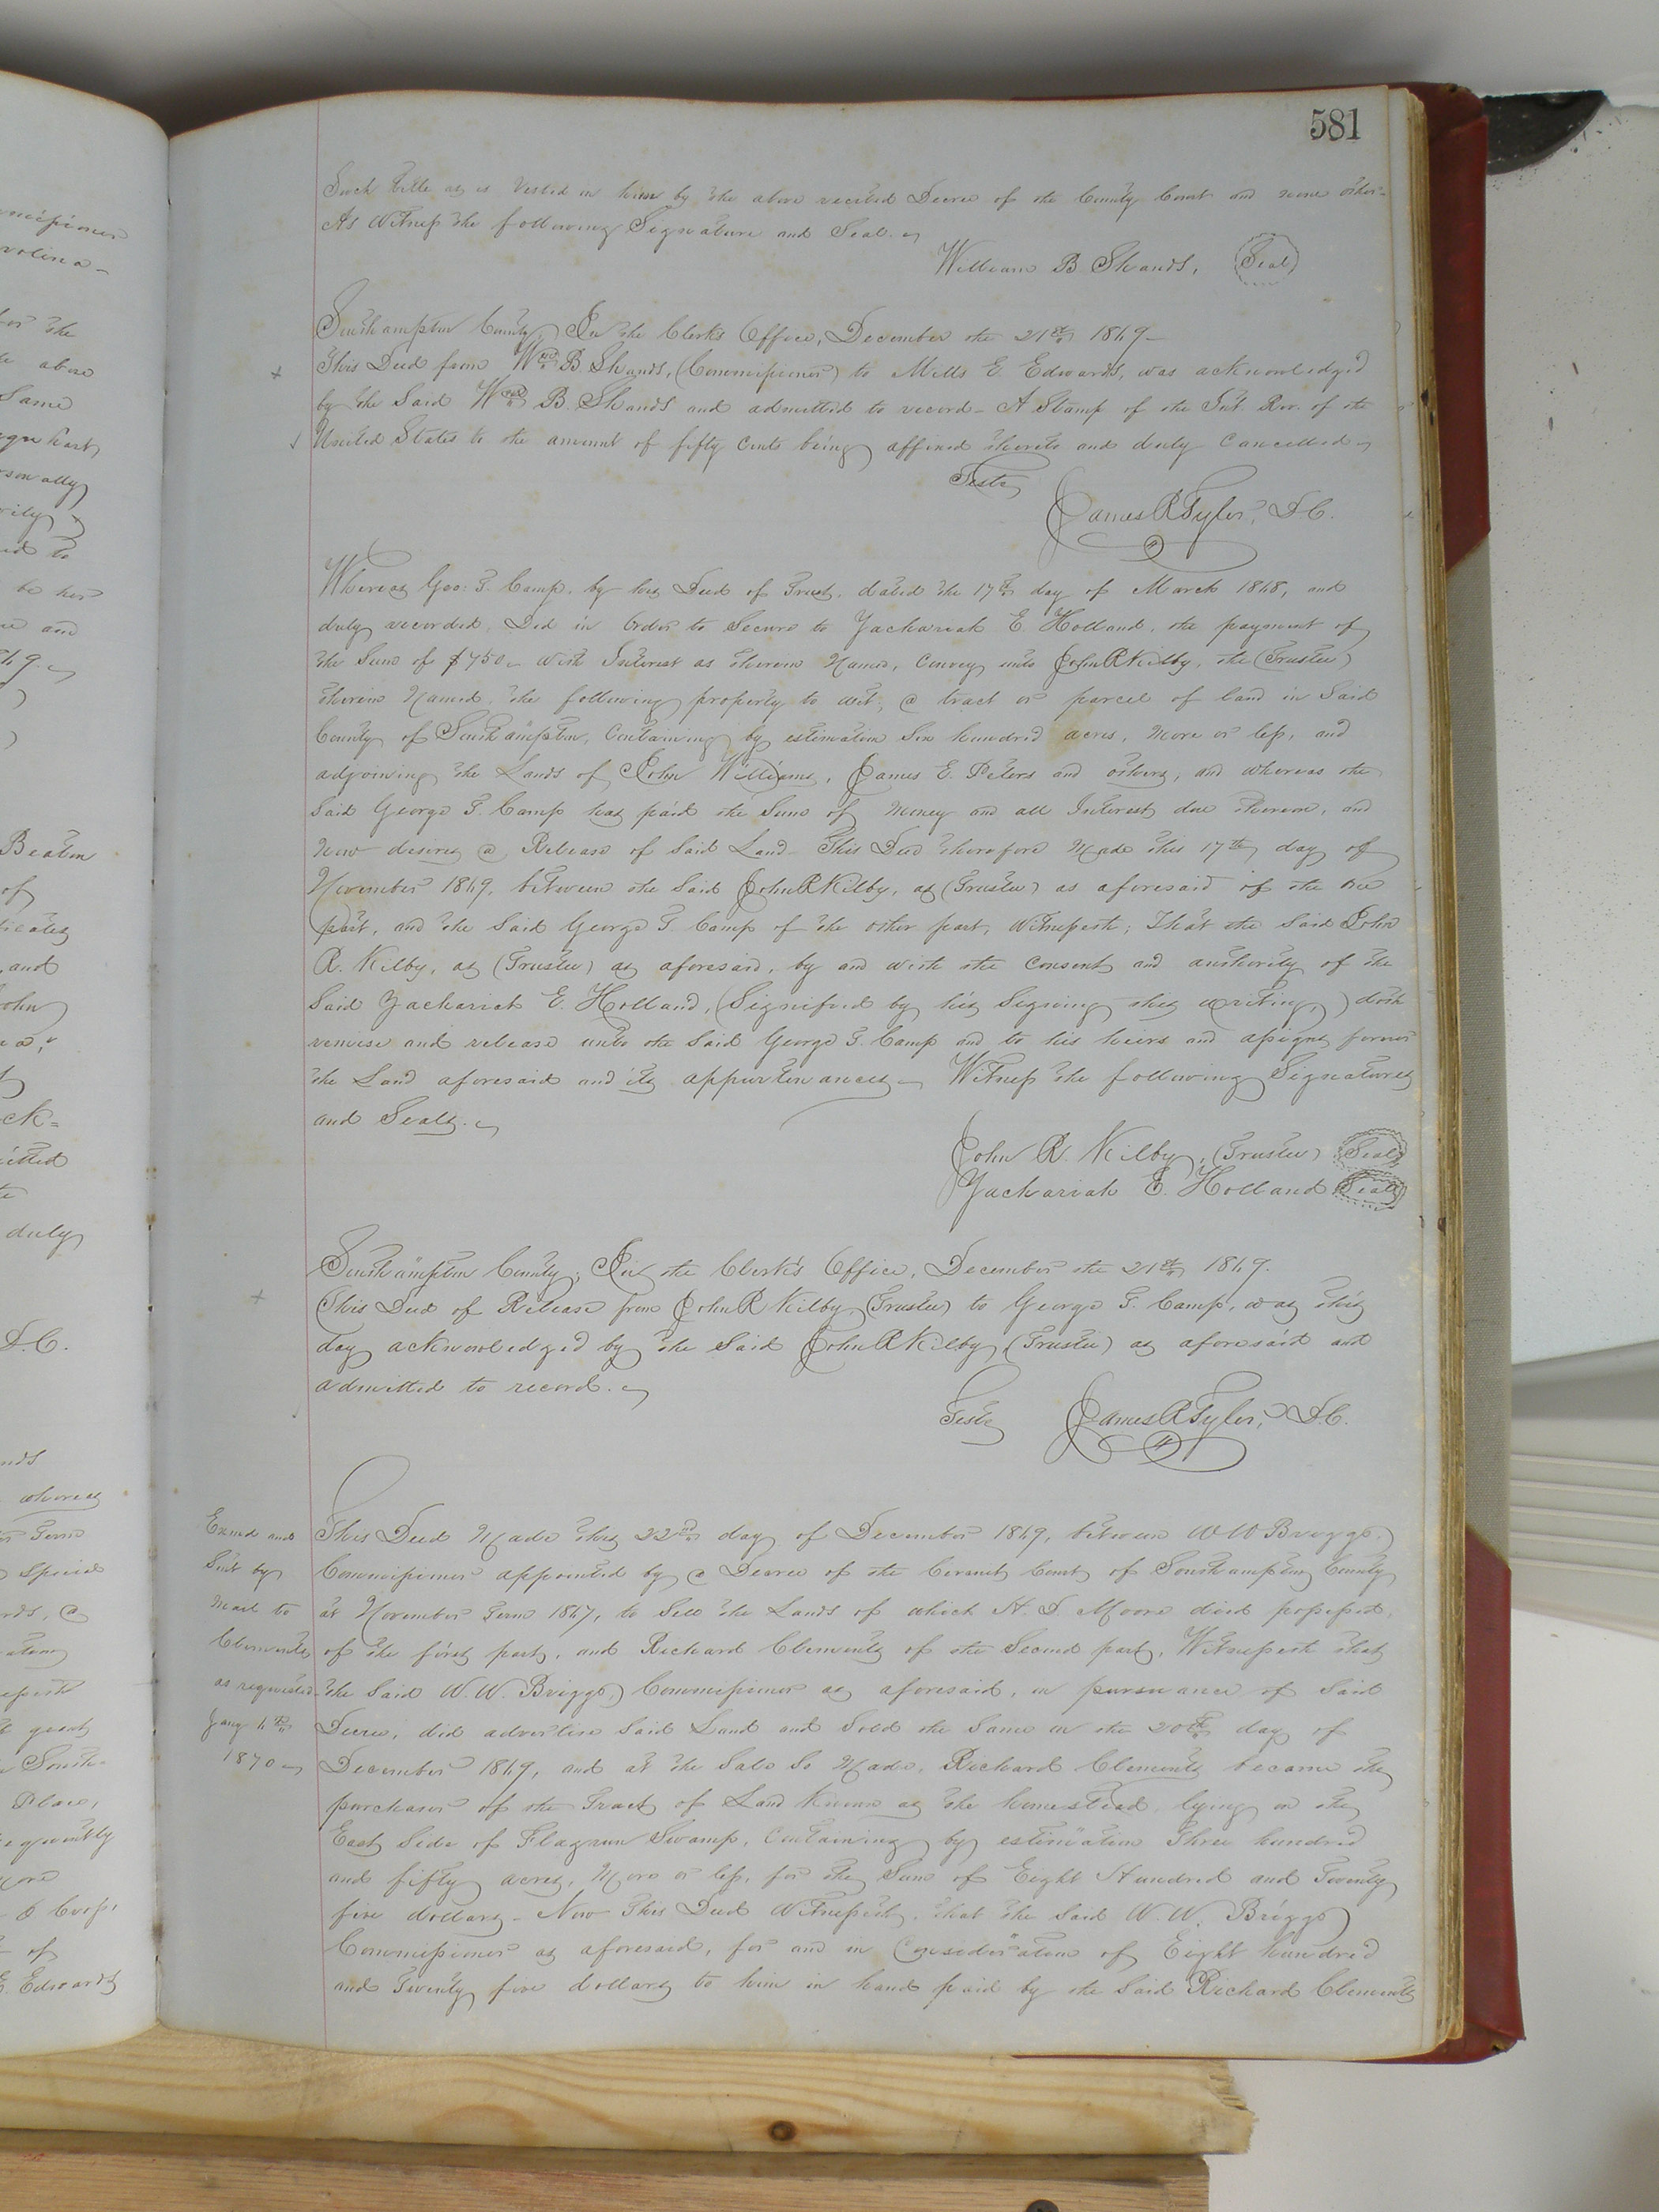 581
Such title as is Vested in him by the above recited Decree of the County Court and none other-
As Witness the following Signature and Seal.
William B. Shands, (Seal)
Southampton County, In the Clerks Office, December the 21st 1869-
This Deed from Wm B Shands, (Commissioner) to Mills E Edwards, was acknowledged
by the Said Wm B. Shands and admitted to record- A Stamp of the Int. Rev. of the
United States to the amount of fifty Cents being affixed thereto and duly Cancelled-
Teste
James R Tyler, D.C.
Whereas Geo: T. Camp. by his Deed of Trust. dated the 17th day of March 1868, and
duly recorded, Did in Order to Secure to Zachariah E. Holland, the payment of
the Sum of $750- with Interest as therein Named, Convey unto John R Kilby, the (Trustee)
therein Named, the following property to wit; a tract or parcel of land in Said
County of Southampton, Containing by estimation Six hundred acres, More or less, and
adjoining the Lands of John Williams, James E. Peters and others, and whereas the
Said George T. Camp has paid the Sum of Money and all Interest due thereon, and
Now desires a Release of Said Land- This Deed therefore Made this 17th day of
November 1869, between the Said John R Kilby, as (Trustee) as aforesaid of the one
part, and the Said George T. Camp of the other part, Witnesseth; That the Said John
R. Kilby, as (Trustee) as aforesaid, by and with the Consent and authority of the
Said Zachariah E. Holland, (Signified by his Signing this writing,) doth
remise and release unto the Said George T. Camp and to his heirs and assigns forever
the Land aforesaid and its appurtenances- Witness the following Signatures
and Seals.
John R. Kilby, (Trustee) (Seal)
Zachariah E. Holland (Seal)
Southampton County, In the Clerk's Office, December the 21st 1869.
This Deed of Release from John R Kilby (Trustee) to George T. Camp, was this
day acknowledged by the Said John R Kilby (Trustee) as aforesaid and
admitted to record.
Teste James R Tyler, D.C.
Exmd and
Sent by
Mail to
Clements
as requested
Jany 6th
1870-
This Deed Made this 22nd day of December 1869, between W W Briggs,
Commissioner appointed by a Decree of the Circuit Court of Southampton County
at November Term 1867, to Sell the Lands of which A. D. Moore died possessed,
of the first part, and Richard Clements of the Second part, Witnesseth that
the Said W. W. Briggs, Commissioner as aforesaid, in pursuance of Said
Decree, did advertise Said Land and Sold the Same on the 20th day of
December 1869, and at the Sale So Made, Richard Clements became the
purchaser of the Tract of Land Known as the homestead, lying on the
East Side of Flagrun Swamp, Containing by estimation Three hundred
and fifty acres, More or less, for the Sum of Eight Hundred and Twenty
five dollars- Now This Deed Witnesseth, that the Said W. W. Briggs
Commissioner as aforesaid, for and in Consideration of Eight hundred
and Twenty five dollars to him in hand paid by the Said Richard Clements